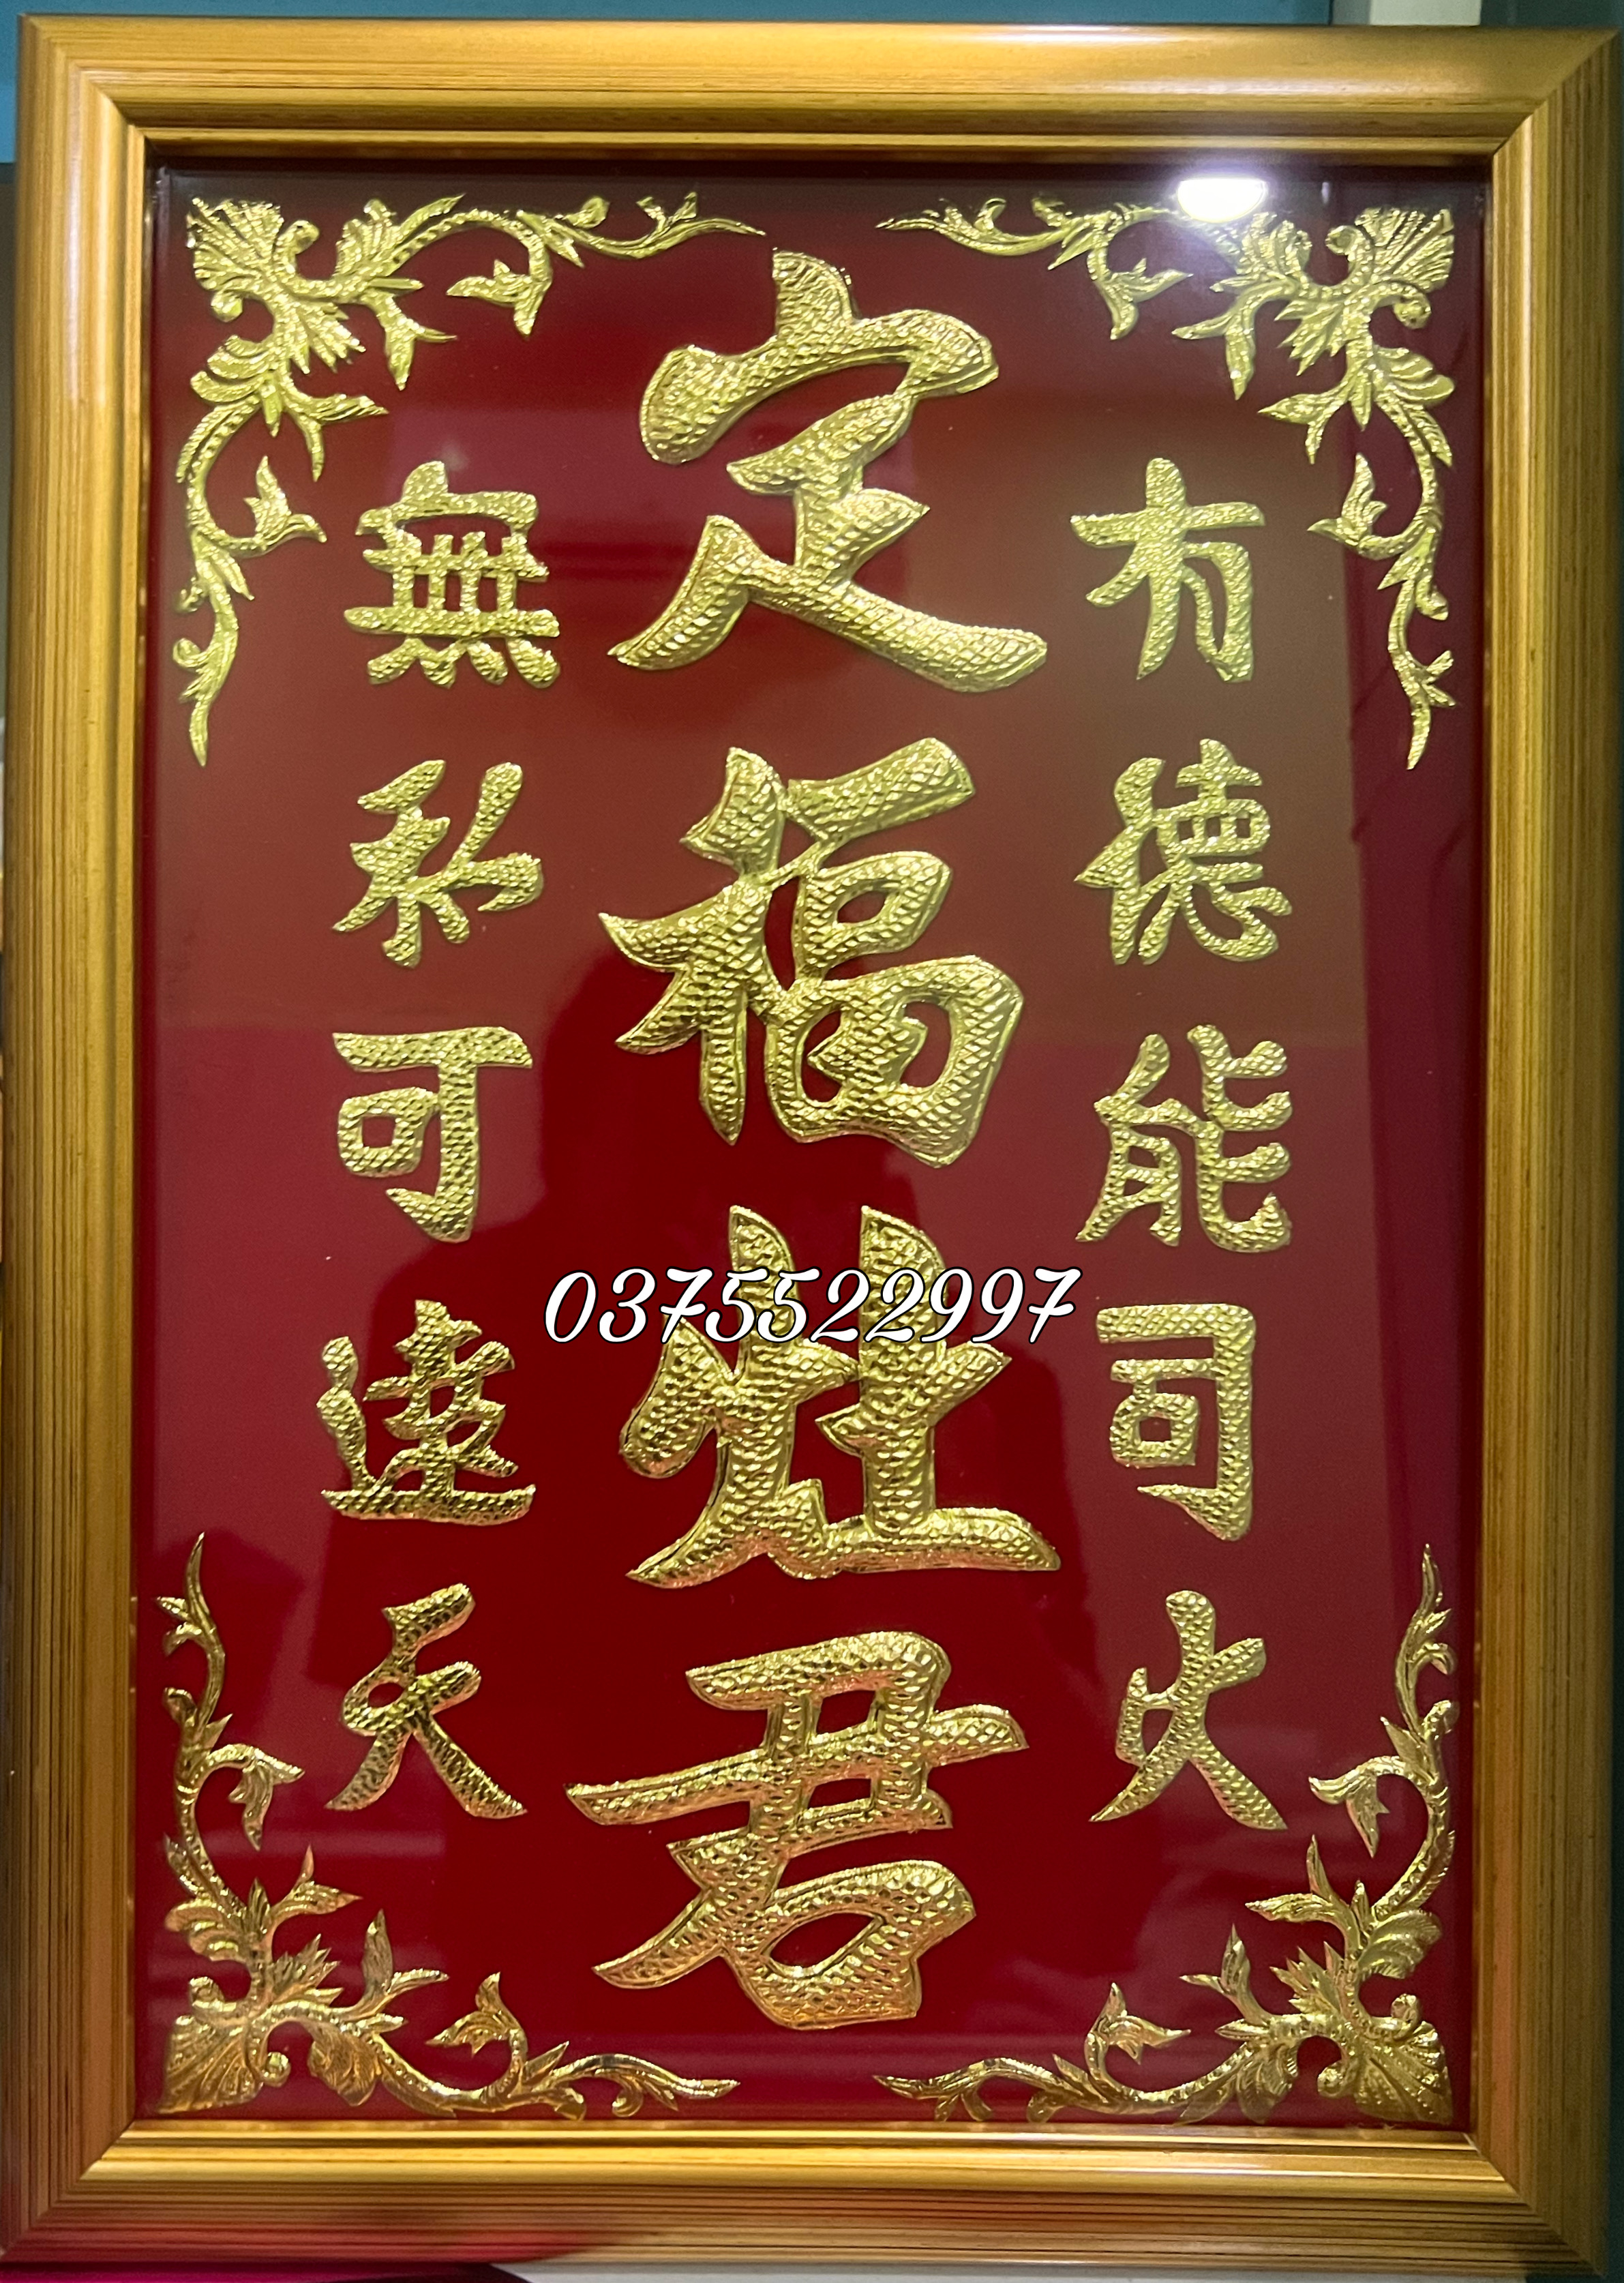 有德能司火
定福灶君
無私可達天
0375522997